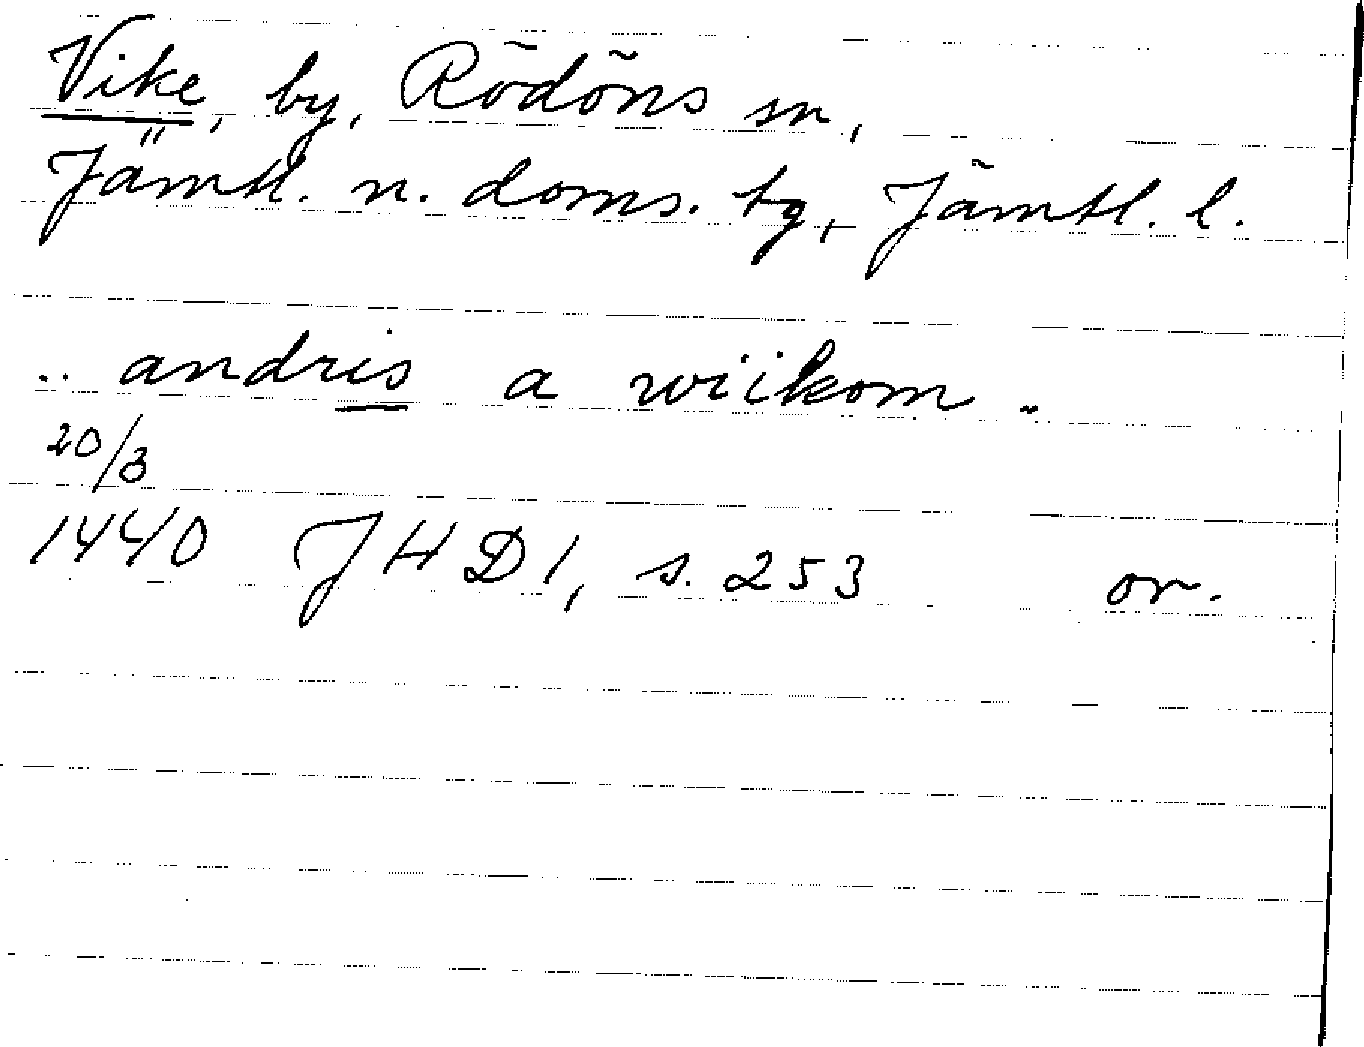 Vike, by, Rödöns sn,
Jämtl. n. doms. tg, Jämtl. l.
.. andris a wiikom ..
20/3
1440 JHD 1, s. 253 or.